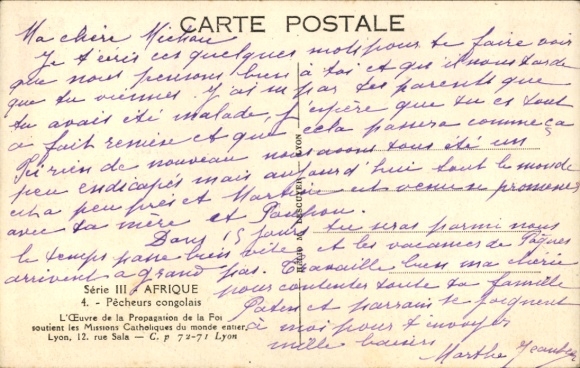 CARTE POSTALE
Ma chère Michou
Je t'écris ces quelques mots pour te faire voir
que nous pensons bien à toi et qu'il nous tarde
que tu viennes. J'ai su par tes parents que
tu avais été malade, j'espère que tu es tout
à fait remise et que cela passera comme ça
rien de nouveau nous avons tous été un
peu endicapés mais aujourd'hui tout le monde
est a peu près et est venu se promener
avec ta mère et
Dans 15 jours tu seras parmi nous
le temps passe bien vite et les vacances de Pâques
arrivent a grand pas. Travaille bien ma chérie
pour contenter toute ta famille
et parrain se joignent
à moi pour t'envoyer
mille baisers
Marthe
Série III AFRIQUE
4. - Pêcheurs congolais
L'Œuvre de la Propagation de la Foi
soutient les Missions Catholiques du monde entier.
Lyon, 12, rue Sala — C. p 72-71 Lyon
HÉLIO M. LESCUYER LYON